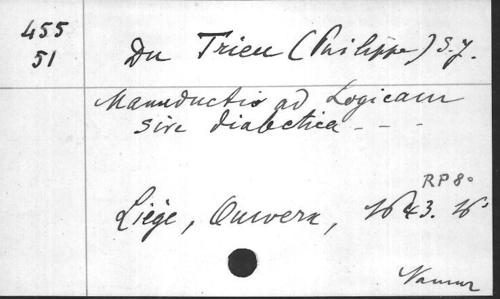 455
51
Du Trieu (Philippe) S.J.
Manuductio ad Logicam
sive dialectica - - -
RP 8°
Liége, Ouwerx, 1643. 16°
Namur